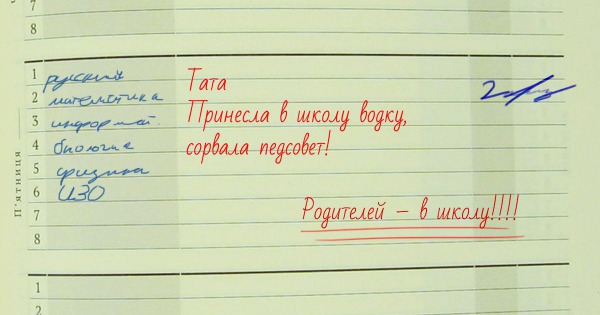 7
8
1 русский
2 математика
3 информат.
4 биология
5 физика
6 ИЗО
7
8
П'ятниця
Тата
Принесла в школу водку,
сорвала педсовет!
Родителей – в школу!!!!
1
2